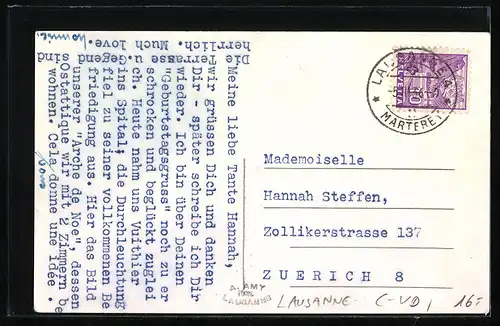 Meine liebe Tante Hannah,
wir grüssen Dich und danken
Dir - später schreibe ich Dir
wieder. Ich bin über Deinen
"Geburtstagsgruss" noch zu er
schrocken und beglückt zuglei
ch. Heute nahm uns Vuithier
ins Spital, die Durchleuchtung
fiel zu seiner vollkommenen Be
friedigung aus. Hier das Bild
unserer "Arche de Noe", dessen
sOstattique wir mit 2 Zimmern be
wohnen. Cela donne une idée.
Die Terrasse u. Gegend sind
herrlich. Much love.
LAUSANNE
MARTEREY
HELVETIA
10
Mademoiselle
Hannah Steffen,
Zollikerstrasse 137
ZUERICH 8
A. AMY
LAUSANNE
LAUSANNE C-VD, 16.-